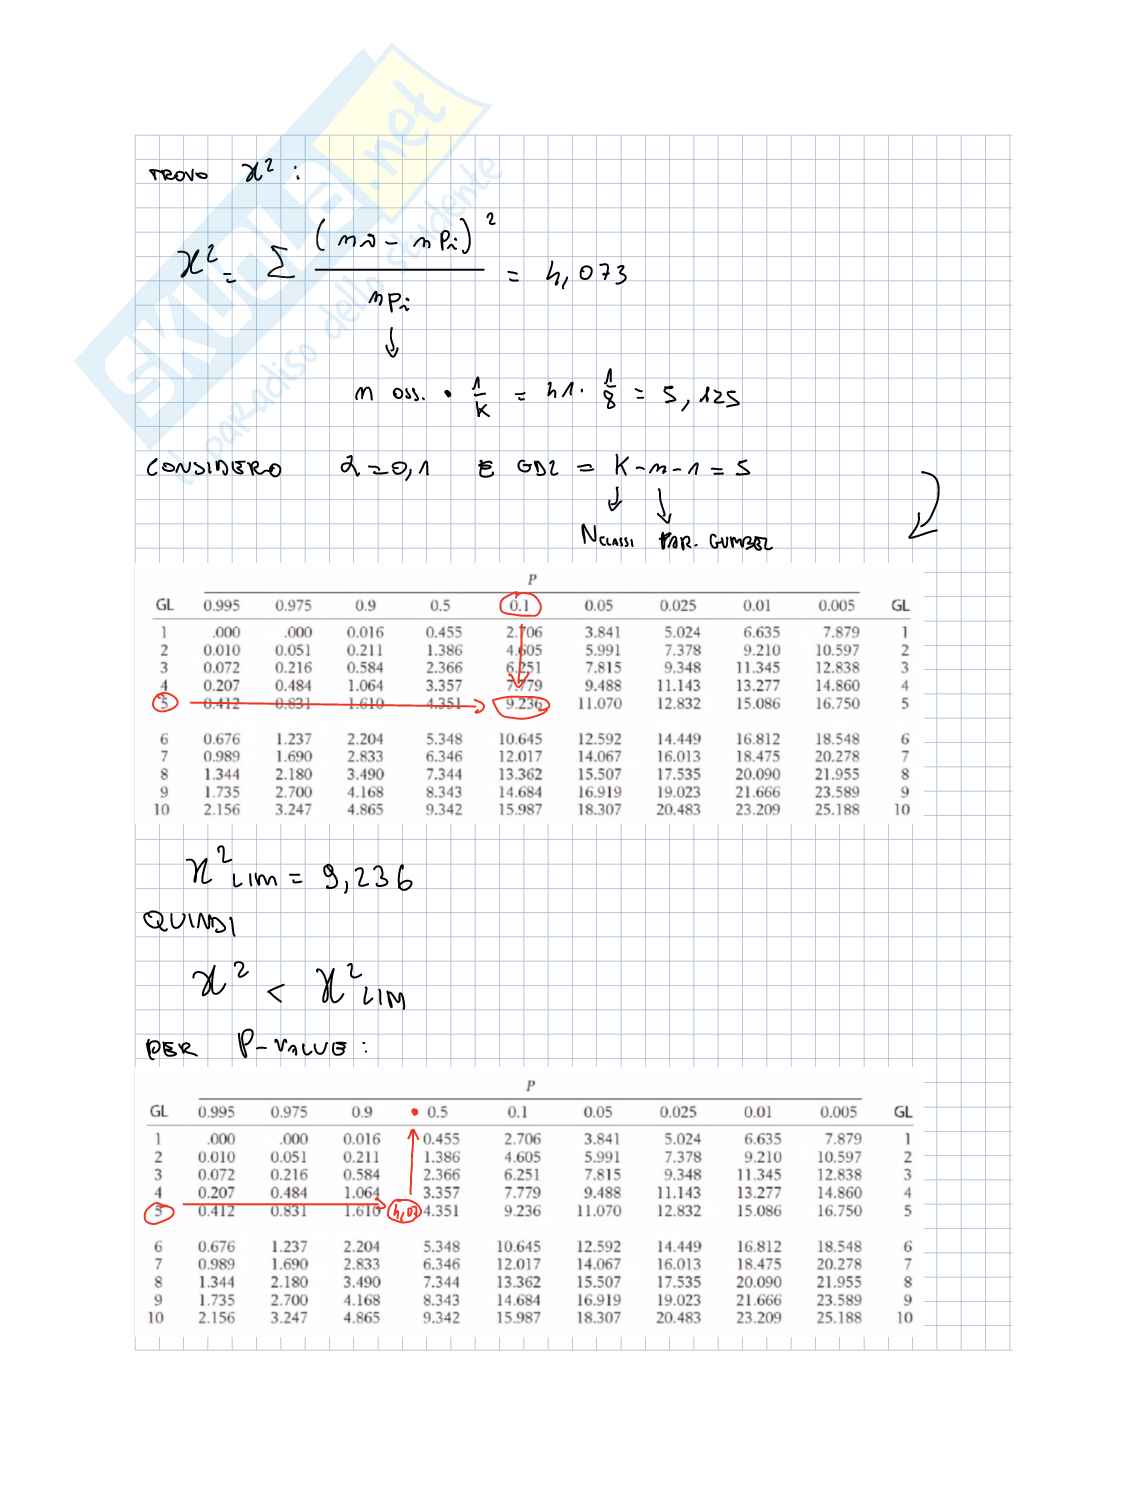 SKUOLA.net
il paradiso dello studente
TROVO χ² :
χ² = Σ (ni - nPi)² / nPi = 4,073
↓
n oss. · 1/K = 41 · 1/8 = 5,125
CONSIDERO α = 0,1 E GDL = K - n - 1 = 5
↓ ↘
N CLASSI PAR. GUMBEL
P
GL 0.995 0.975 0.9 0.5 0.1 0.05 0.025 0.01 0.005 GL
1 .000 .000 0.016 0.455 2.706 3.841 5.024 6.635 7.879 1
2 0.010 0.051 0.211 1.386 4.605 5.991 7.378 9.210 10.597 2
3 0.072 0.216 0.584 2.366 6.251 7.815 9.348 11.345 12.838 3
4 0.207 0.484 1.064 3.357 7.779 9.488 11.143 13.277 14.860 4
5 0.412 0.831 1.610 4.351 9.236 11.070 12.832 15.086 16.750 5
6 0.676 1.237 2.204 5.348 10.645 12.592 14.449 16.812 18.548 6
7 0.989 1.690 2.833 6.346 12.017 14.067 16.013 18.475 20.278 7
8 1.344 2.180 3.490 7.344 13.362 15.507 17.535 20.090 21.955 8
9 1.735 2.700 4.168 8.343 14.684 16.919 19.023 21.666 23.589 9
10 2.156 3.247 4.865 9.342 15.987 18.307 20.483 23.209 25.188 10
χ² LIM = 9,236
QUINDI
χ² < χ² LIM
PER P-VALUE :
P
GL 0.995 0.975 0.9 0.5 0.1 0.05 0.025 0.01 0.005 GL
1 .000 .000 0.016 0.455 2.706 3.841 5.024 6.635 7.879 1
2 0.010 0.051 0.211 1.386 4.605 5.991 7.378 9.210 10.597 2
3 0.072 0.216 0.584 2.366 6.251 7.815 9.348 11.345 12.838 3
4 0.207 0.484 1.064 3.357 7.779 9.488 11.143 13.277 14.860 4
5 0.412 0.831 1.610 4,07 4.351 9.236 11.070 12.832 15.086 16.750 5
6 0.676 1.237 2.204 5.348 10.645 12.592 14.449 16.812 18.548 6
7 0.989 1.690 2.833 6.346 12.017 14.067 16.013 18.475 20.278 7
8 1.344 2.180 3.490 7.344 13.362 15.507 17.535 20.090 21.955 8
9 1.735 2.700 4.168 8.343 14.684 16.919 19.023 21.666 23.589 9
10 2.156 3.247 4.865 9.342 15.987 18.307 20.483 23.209 25.188 10